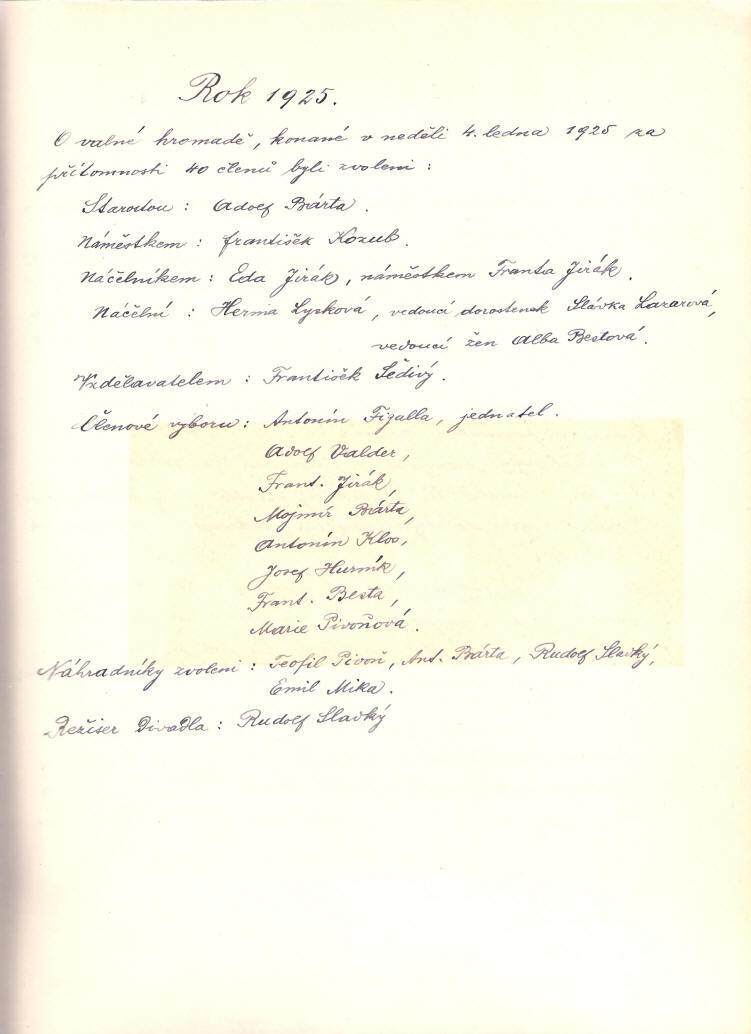 Rok 1925.
O valné hromadě, konané v neděli 4. ledna 1925 za
přítomnosti 40 členů byli zvoleni :
Starostou : Adolf Bárta.
Náměstkem : František Kozub.
Náčelníkem : Eda Jirák, náměstkem Franta Jirák.
Náčelní : Herma Lysková, vedoucí dorostenek Slávka Lazarová,
vedoucí žen Alba Bestová.
Vzdělavatelem : František Šedivý.
Členové výboru : Antonín Figalla, jednatel.
Adolf Valder,
Frant. Jirák,
Mojmír Bárta,
Antonín Klos,
Josef Hurník,
Frant. Besta,
Marie Pivoňová.
Náhradníky zvoleni : Teofil Pivoň, Ant. Bárta, Rudolf Slavký,
Emil Mika.
Režiser Divadla : Rudolf Slavký